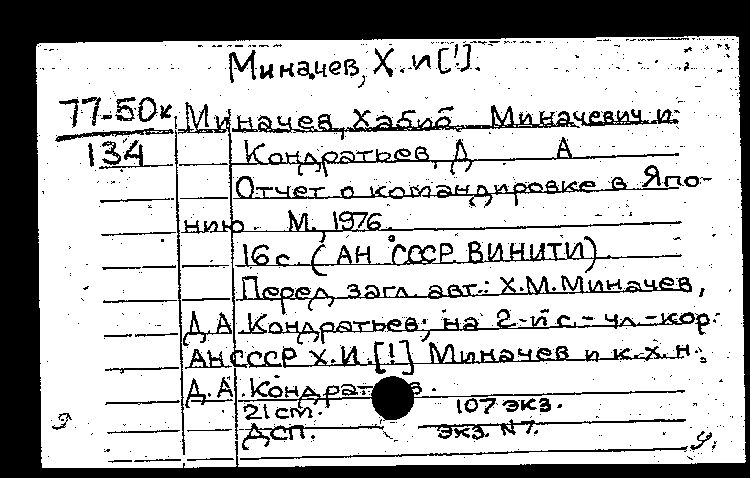 Миначев, Х.И[!].
77-50к Миначев, Хабиб Миначевич и
134 Кондратьев, Д А
Отчет о командировке в Япо-
нию. М., 1976.
16 с. (АН СССР ВИНИТИ).
Перед загл. авт.: Х.М.Миначев,
Д.А Кондратьев; на 2-й с. - чл.-кор.
АН СССР Х.И.[!] Миначев и к.х.н.
Д.А. Кондратьев.
21 cm. 107 экз.
ДСП. экз. N 7.